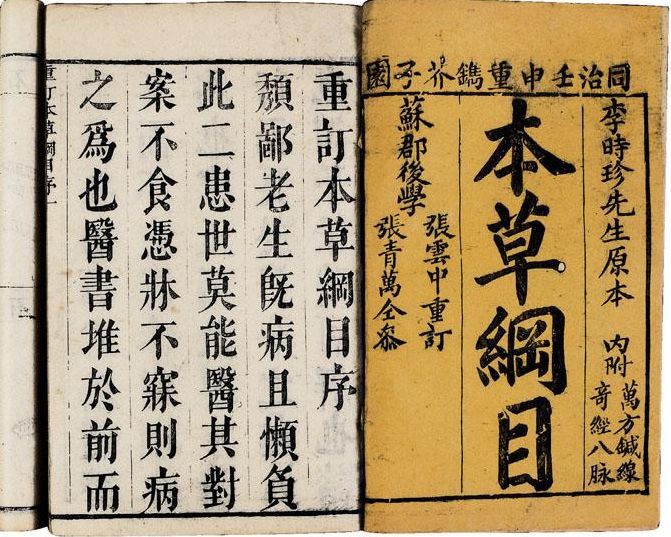 同治壬申重鐫芥子園
李時珍先生原本
內附萬方鍼線
奇經八脉
本草綱目
張雲中重訂
蘇郡後學
張青萬仝參
重訂本草綱目序
頽鄙老生旣病且懶負
此二患世莫能醫其對
案不食憑牀不寐則病
之爲也醫書堆於前而
重訂本草綱目序一